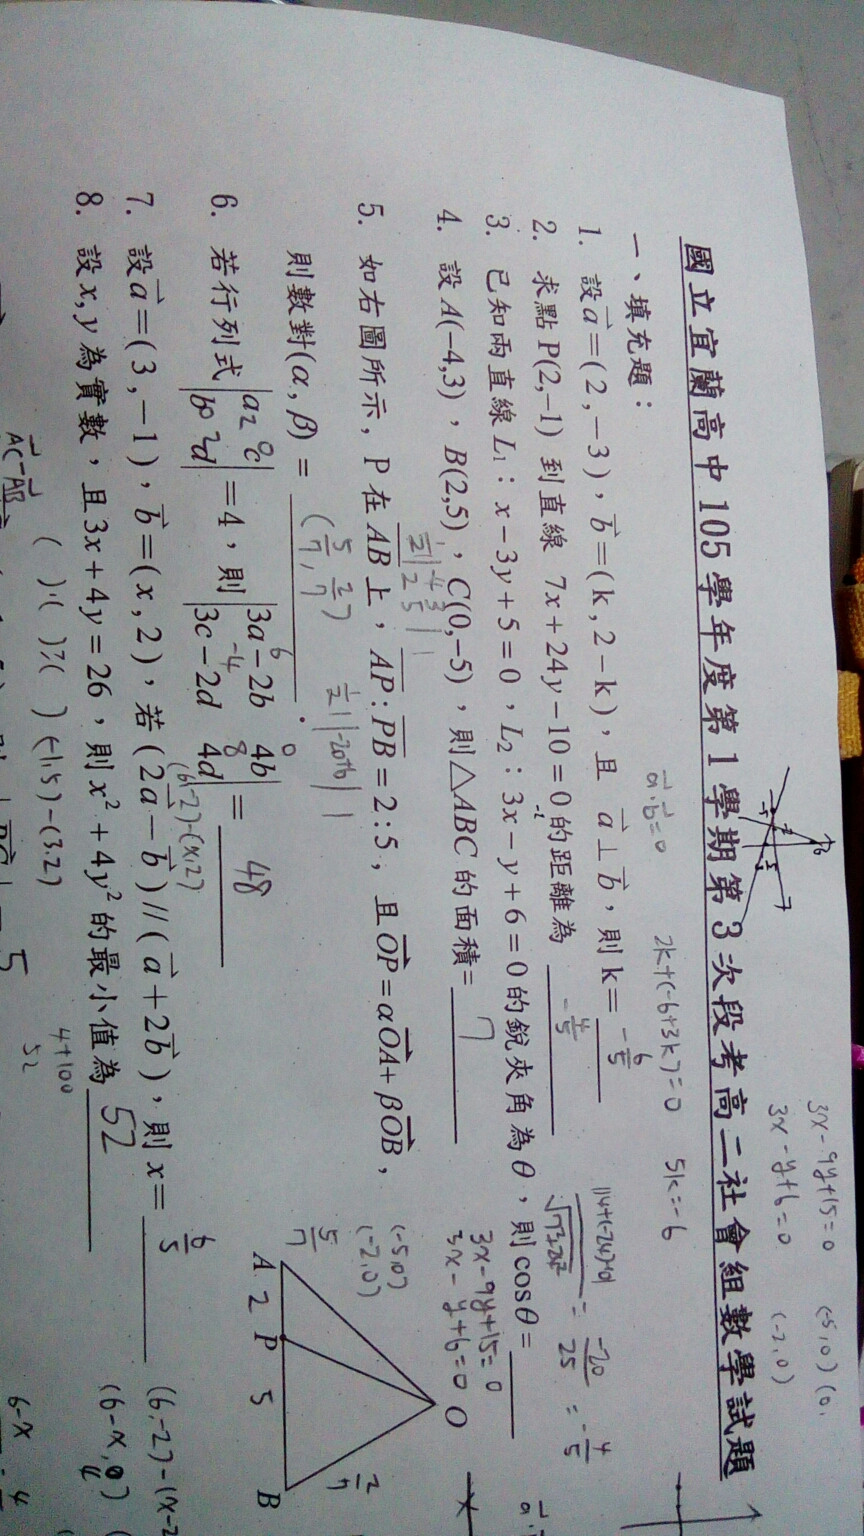 國立宜蘭高中105學年度第1學期第3次段考高二社會組數學試題
3x-9y+15=0
3x-y+6=0
(-5,0)
(-2,0)
一、填充題:
1. 設a⃗=(2,-3),b⃗=(k,2-k),且 a⃗⊥b⃗,則k= -6/5
a⃗·b⃗=0 2k+(-6+3k)=0 5k=-6
2. 求點P(2,-1) 到直線 7x+24y-10=0的距離為 -4/5
= -20/25 = -4/5
3. 已知兩直線L₁:x-3y+5=0,L₂:3x-y+6=0的銳夾角為θ,則cosθ=
3x-9y+15=0
3x-y+6=0
(-5,0)
(-2,0)
4. 設A(-4,3),B(2,5),C(0,-5),則△ABC的面積= 7
5. 如右圖所示,P在AB上,AP:PB=2:5,且OP⃗=αOA⃗+βOB⃗,
則數對(α,β)= (5/7, 2/7).
A 2 P 5 B
O
5/7
2/7
6. 若行列式 |a c; b d| =4,則 |3a-2b 4b; 3c-2d 4d| = 48
7. 設a⃗=(3,-1),b⃗=(x,2),若(2a⃗-b⃗)//(a⃗+2b⃗),則x= 6/5
(6,-2)-(x,2)
8. 設x,y為實數,且3x+4y=26,則x²+4y²的最小值為 52
4+100
52
( )·( )≥( )
(-1,5)-(3,2)
AC⃗-AB⃗